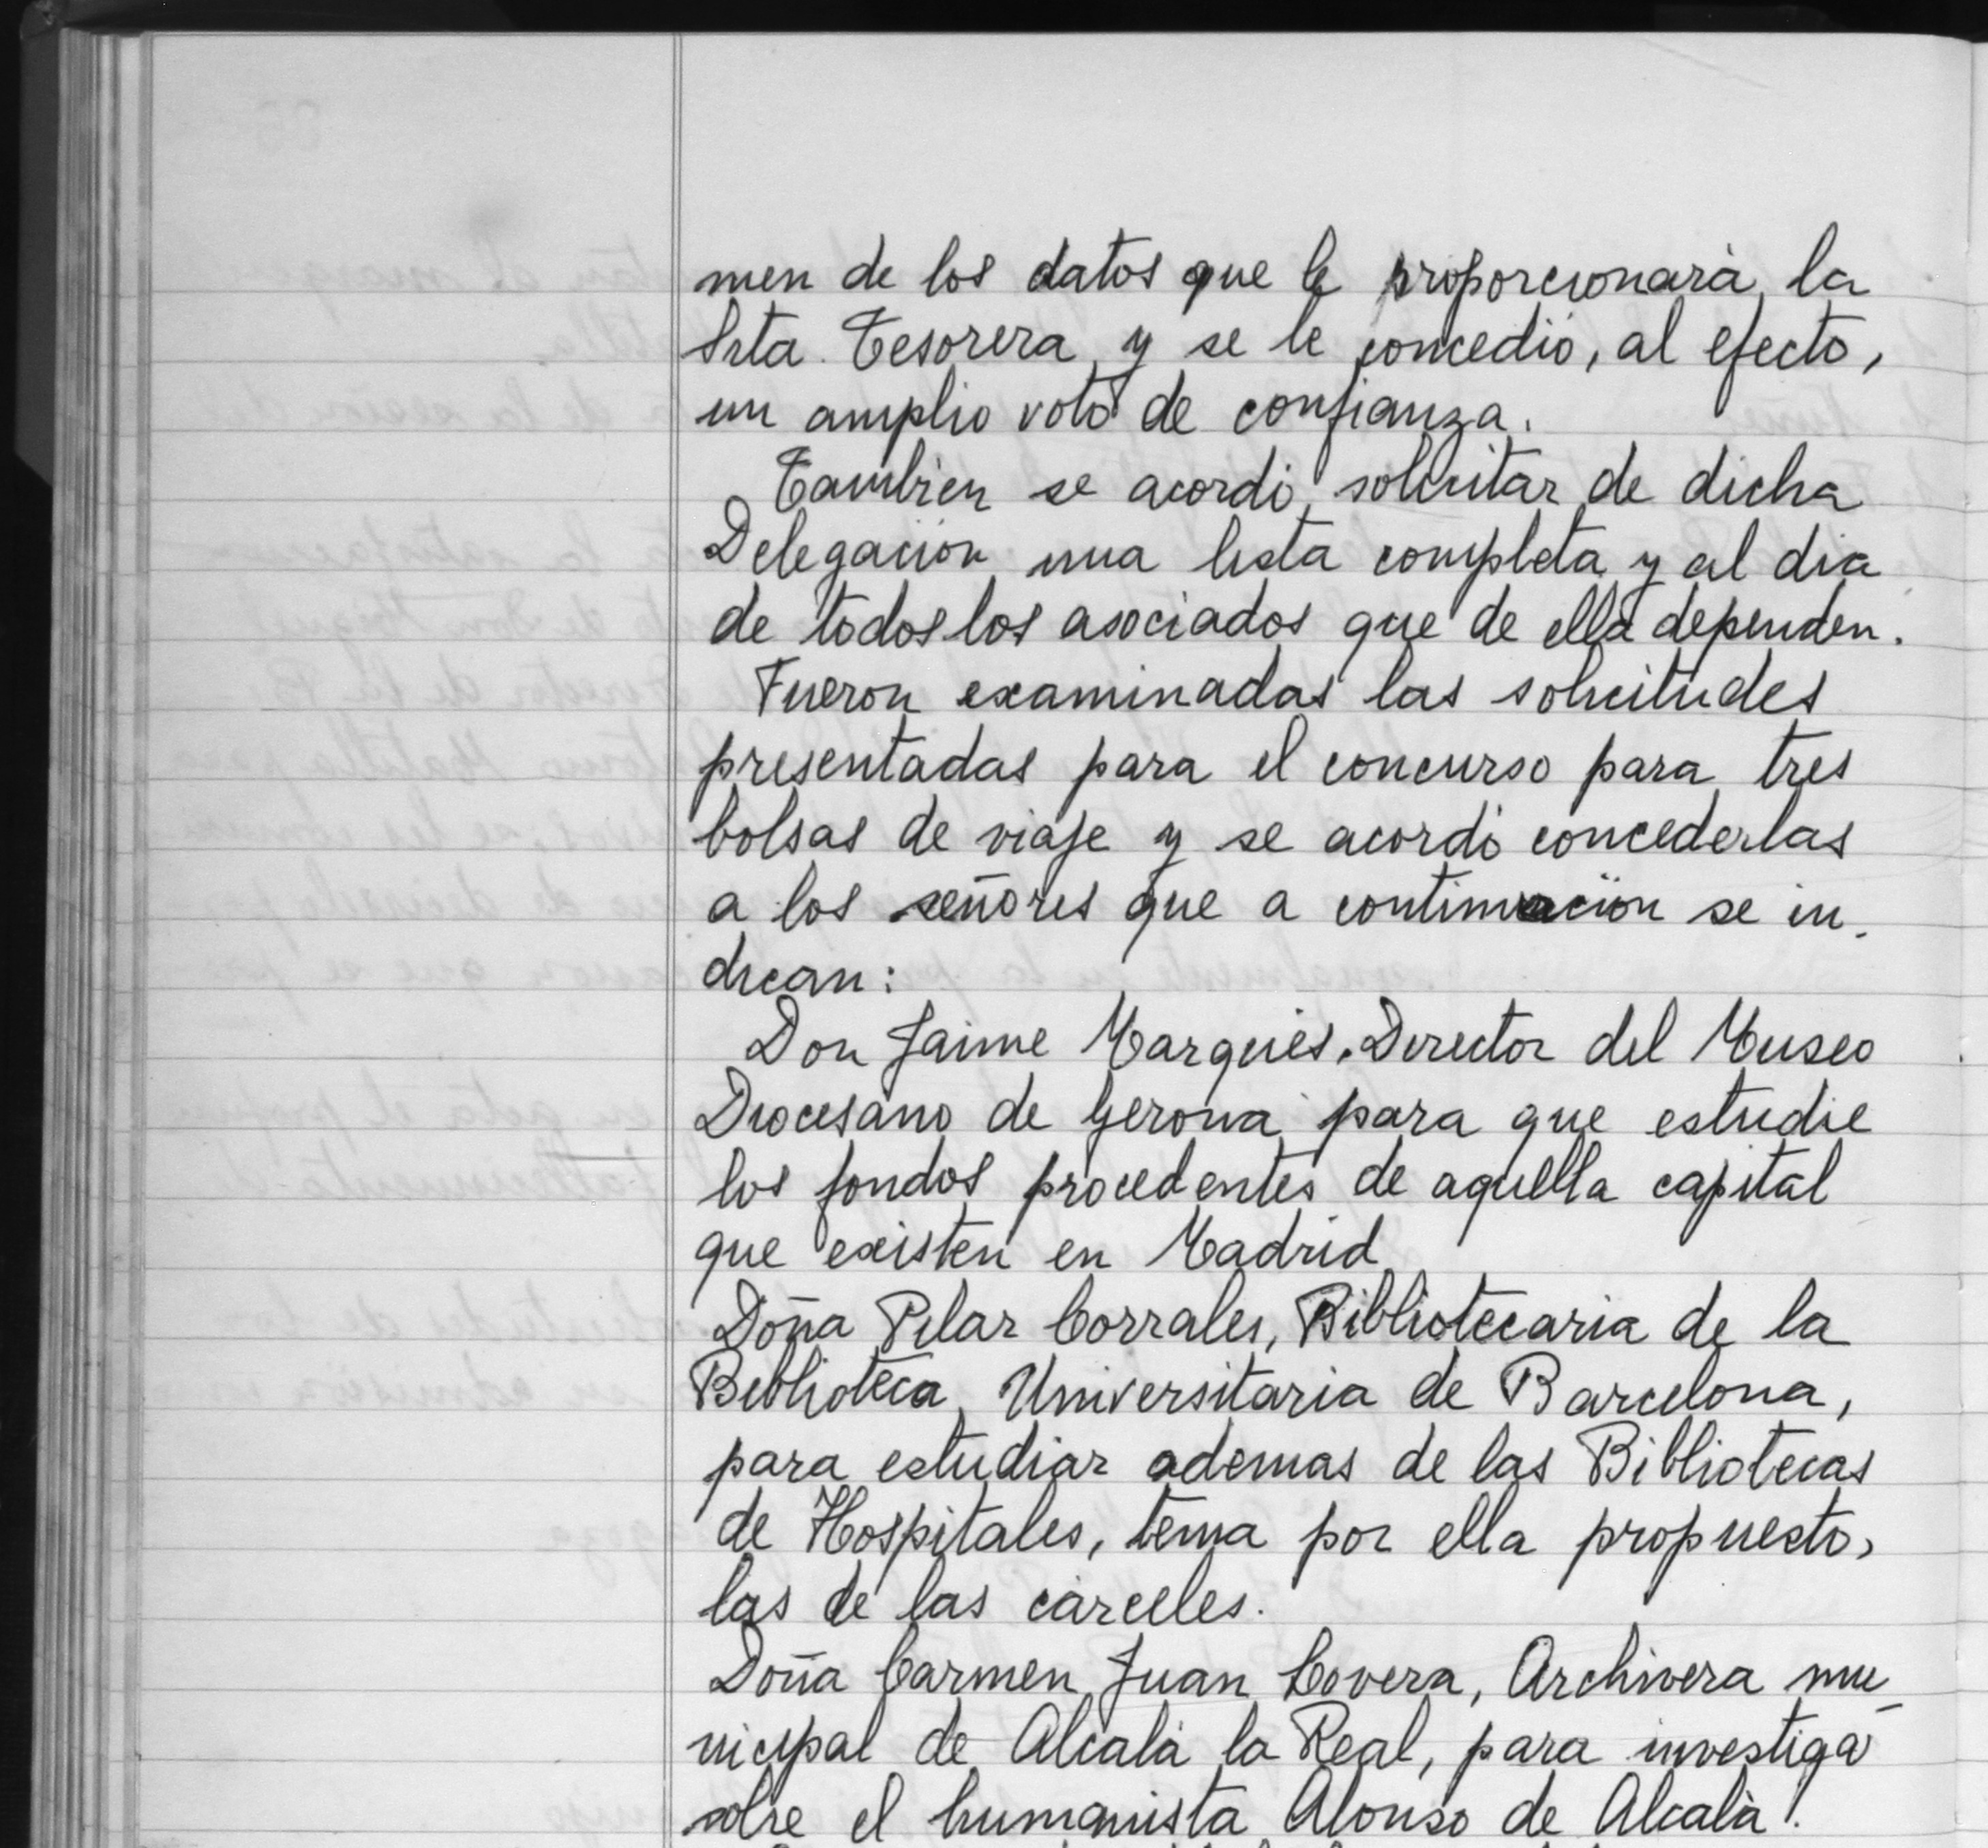 men de los datos que le proporcionará la
Srta. Tesorera y se le concedió, al efecto,
un amplio voto de confianza.
También se acordó solicitar de dicha
Delegación una lista completa y al dia
de todos los asociados que de ella dependen.
Fueron examinadas las solicitudes
presentadas para el concurso para tres
bolsas de viaje y se acordó concederlas
a los señores que a continuación se in-
dican:
Don Jaime Marqués. Director del Museo
Diocesano de Gerona para que estudie
los fondos procedentes de aquella capital
que existen en Madrid
Doña Pilar Corrales, Bibliotecaria de la
Biblioteca Universitaria de Barcelona,
para estudiar ademas de las Bibliotecas
de Hospitales, tema por ella propuesto,
las de las cárceles.
Doña Carmen Juan Lovera, Archivera mu-
nicipal de Alcalá la Real, para investigar
sobre el humanista Alonso de Alcalá.